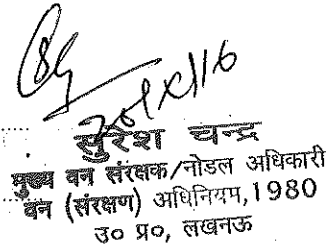 सुरेश चन्द्र
मुख्य वन संरक्षक/नोडल अधिकारी
वन (संरक्षण) अधिनियम,1980
उ० प्र०, लखनऊ